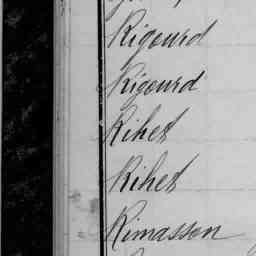 Rigourd
Rigourd
Rihet
Rihet
Rimasson